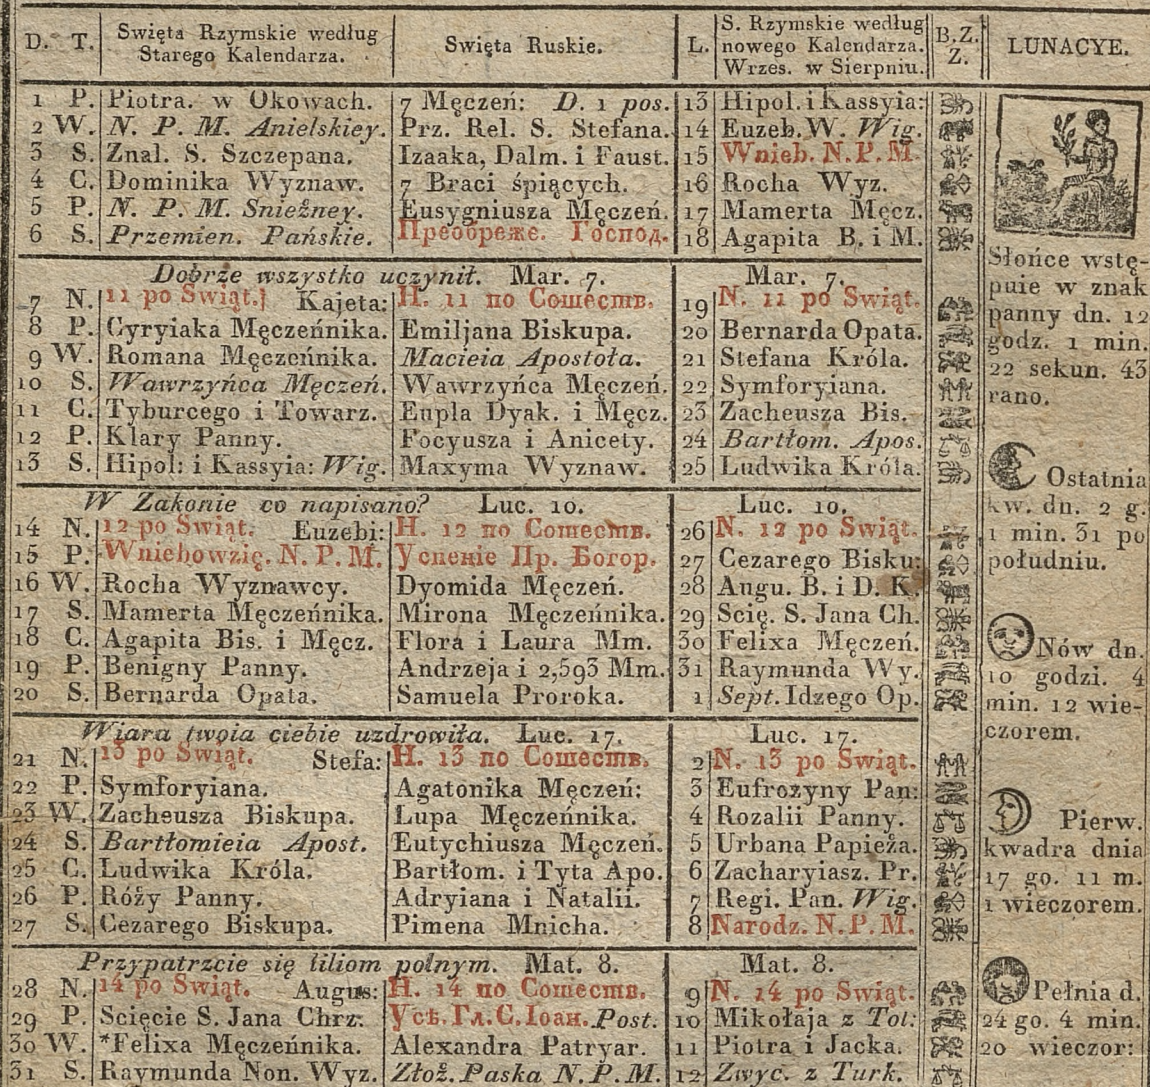 D. T. Swięta Rzymskie według Starego Kalendarza. Swięta Ruskie. L. S. Rzymskie według nowego Kalendarza. Wrzes. w Sierpniu. B. Z. Z. LUNACYE.
1 P. Piotra. w Okowach. 7 Męczeń: D. 1 pos. 13 Hipol. i Kassyia:
2 W. N. P. M. Anielskiey. Prz. Rel. S. Stefana. 14 Euzeb. W. Wig.
3 S. Znal. S. Szczepana. Izaaka, Dalm. i Faust. 15 Wnieb. N. P. M.
4 C. Dominika Wyznaw. 7 Braci śpiących. 16 Rocha Wyz.
5 P. N. P. M. Snieżney. Eusygniusza Męczeń. 17 Mamerta Męcz.
6 S. Przemien. Pańskie. Преображе. Господ. 18 Agapita B. i M.
Dobrze wszystko uczynił. Mar. 7. Mar. 7.
7 N. 11 po Swiąt. Kajeta: Н. 11 по Сошеств. 19 N. 11 po Swiąt.
8 P. Cyryiaka Męczeńnika. Emiljana Biskupa. 20 Bernarda Opata.
9 W. Romana Męczeńnika. Macieia Apostoła. 21 Stefana Króla.
10 S. Wawrzyńca Męczeń. Wawrzyńca Męczeń. 22 Symforyiana.
11 C. Tyburcego i Towarz. Eupla Dyak. i Męcz. 23 Zacheusza Bis.
12 P. Klary Panny. Focyusza i Anicety. 24 Bartłom. Apos.
13 S. Hipol: i Kassyia: Wig. Maxyma Wyznaw. 25 Ludwika Króla.
W Zakonie co napisano? Luc. 10. Luc. 10.
14 N. 12 po Swiąt. Euzebi: Н. 12 по Сошеств. 26 N. 12 po Swiąt.
15 P. Wniebowzię. N. P. M. Успеніе Пр. Богор. 27 Cezarego Bisku:
16 W. Rocha Wyznawcy. Dyomida Męczeń. 28 Augu. B. i D. K.
17 S. Mamerta Męczeńnika. Mirona Męczeńnika. 29 Scię. S. Jana Ch.
18 C. Agapita Bis. i Męcz. Flora i Laura Mm. 30 Felixa Męczeń.
19 P. Benigny Panny. Andrzeja i 2,593 Mm. 31 Raymunda Wy.
20 S. Bernarda Opata. Samuela Proroka. 1 Sept. Idzego Op.
Wiara twoia ciebie uzdrowiła. Luc. 17. Luc. 17.
21 N. 13 po Swiąt. Stefa: Н. 13 по Сошеств. 2 N. 13 po Swiąt.
22 P. Symforyiana. Agatonika Męczeń: 3 Eufrozyny Pan:
23 W. Zacheusza Biskupa. Lupa Męczeńnika. 4 Rozalii Panny.
24 S. Bartłomieia Apost. Eutychiusza Męczeń. 5 Urbana Papieża.
25 C. Ludwika Króla. Bartłom. i Tyta Apo. 6 Zacharyiasz. Pr.
26 P. Róży Panny. Adryiana i Natalii. 7 Regi. Pan. Wig.
27 S. Cezarego Biskupa. Pimena Mnicha. 8 Narodz. N. P. M.
Przypatrzcie się liliom polnym. Mat. 8. Mat. 8.
28 N. 14 po Swiąt. Augus: Н. 14 по Сошеств. 9 N. 14 po Swiąt.
29 P. Scięcie S. Jana Chrz: Усѣ. Гл. С. Іоан. Post. 10 Mikołaja z Tol:
30 W. *Felixa Męczeńnika. Alexandra Patryar. 11 Piotra i Jacka.
31 S. Raymunda Non. Wyz. Złoż. Paska N. P. M. 12 Zwyc. z Turk.
Słońce wstę-
puie w znak
panny dn. 12
godz. 1 min.
22 sekun. 43
rano.
Ostatnia
kw. dn. 2 g.
1 min. 31 po
południu.
Nów dn.
10 godzi. 4
min. 12 wie-
czorem.
Pierw.
kwadra dnia
17 go. 11 m.
1 wieczorem.
Pełnia d.
24 go. 4 min.
20 wieczor: